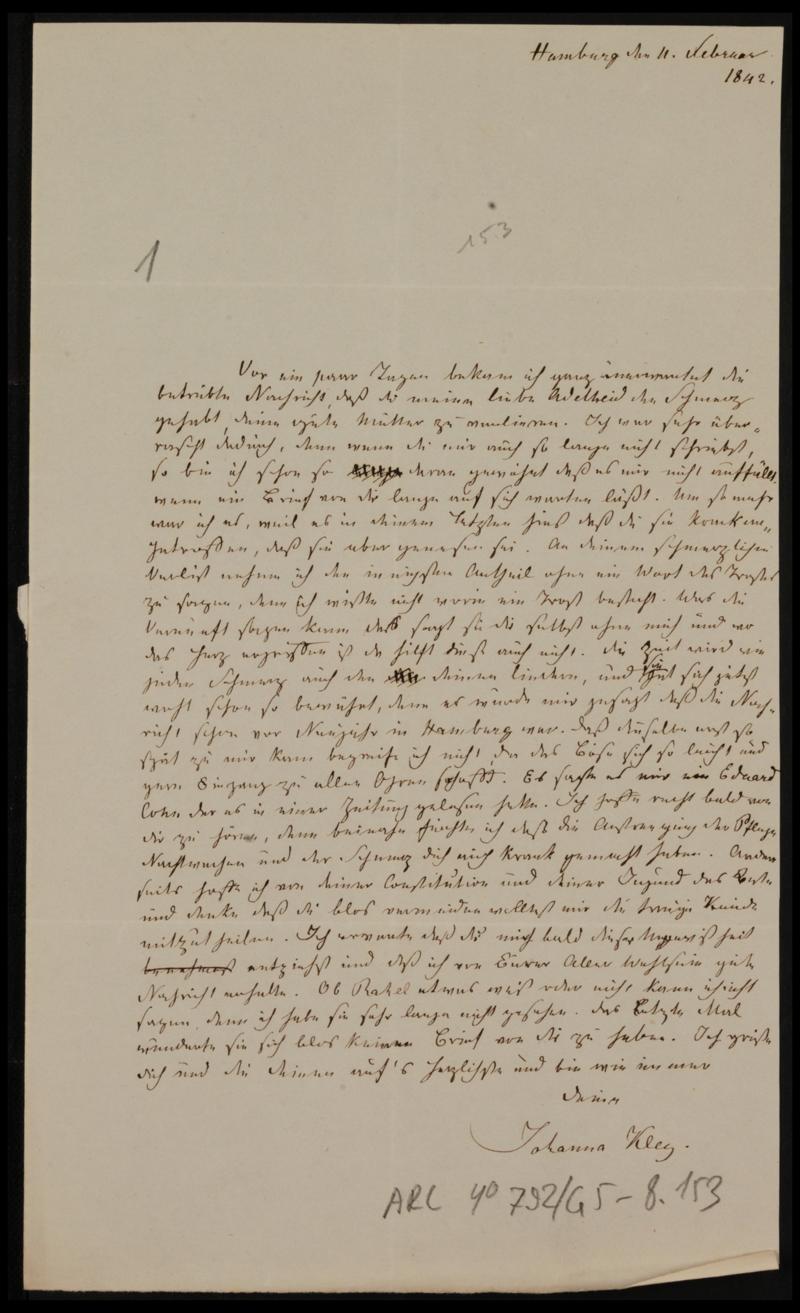 Hamburg den 11. Februar
1842.
153
1
Vor ein paar Tagen bekam ich ganz unerwartet die
betrübte Nachricht, daß du meine liebe Adelheid den Schmerz
gehabt, deine gute Mutter zu verlieren. Ich war sehr über-
rascht dadurch, denn wenn du mir auch so lange nicht schriebst,
so bin ich schon so daran gewöhnt daß es mir nicht auffällt
wenn ein Brief von dir lange auf sich warten läßt. Um so mehr
war ich es, weil es in deinem letzten hies daß du sie krank an-
getroffen, daß sie aber genesen sei. An deinem schmerzlichen
Verlust nehme ich den innigsten Antheil ohne ein Wort des Trostes
zu sagen, denn ich wüßte nicht worin ein Trost besteht. Was die
Vernunft sagen kann das sagst du dir selbst ohne mich und wo
das Herz ergriffen ist da hilft dieß auch nicht. Die Zeit wird wie
jeden Schmerz auch den deinen lindern, und hat sich jetzt
wohl schon so bewährt, denn es wurde mir gesagt daß die Nach-
richt schon vor Neujahr in Hamburg war. Daß dieselbe erst so
spät zu mir kam begreife ich nicht, da das Böse sich so leicht und
gern Eingang zu allen Ohren schafft. Es sagte es mir ein Eduard
Cohn der es in einer Zeitung gelesen hatte. Ich hoffe recht bald von
dir zu hören, denn beinahe fürchte ich daß die Anstrengung der Pflege
Nachtwachen und der Schmerz dich auch krank gemacht haben. Andern
seits hoffe ich von deiner Constitution und deiner Jugend das Beste
und denke daß du blos vermeiden wolltest mir die traurige Kunde
mitzutheilen. Ich erwarte daß du mich bald dieser Ungewißheit
benehmest entziehst und daß ich von Eurer Aller Wohlsein gute
Nachricht erhalte. Ob Rahel etwas weiß oder nicht kann ich nicht
sagen, denn ich habe sie sehr lange nicht gesehen. Das letzte Mal
wunderte sie sich blos keinen Brief von dir zu haben. Ich grüße
dich und die deinen auf's herzlichste und bin wie immer
deine
Johanna Kley.
ARC 4o 792/G5-8.153